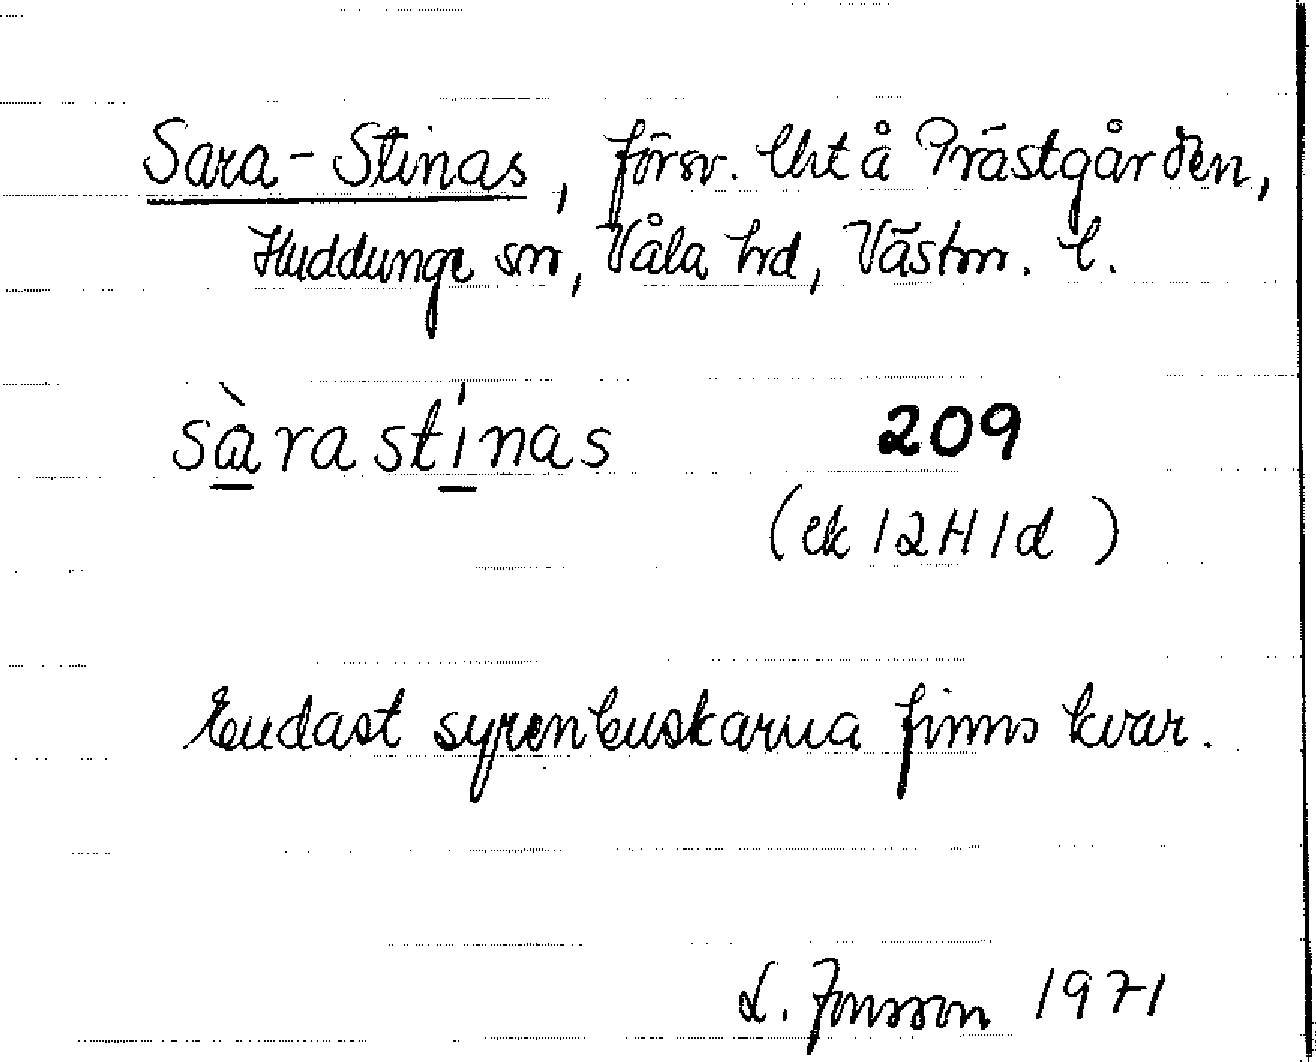 Sara-Stinas, försv. lht å Prästgården,
Huddunge sn, Våla hd, Västm. l.
sàrastínas 209
(ek 12H1d)
Endast syrenbuskarna finns kvar.
L. Jonsson 1971